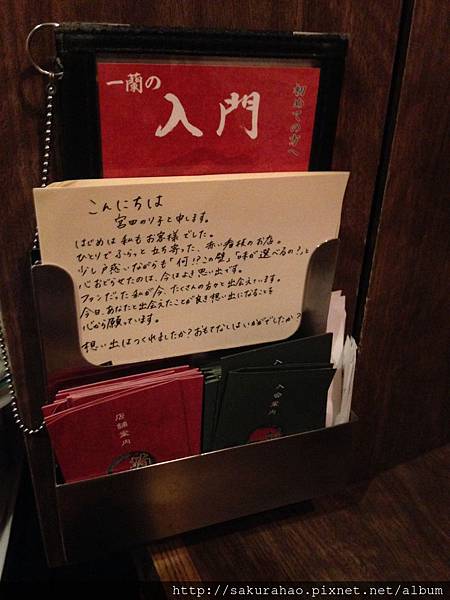 一蘭の
入門
初めての方へ
こんにちは
宮田のり子と申します。
はじめは私もお客様でした。
ひとりでふらっと立ち寄った、赤い看板のお店。
少し戸惑いながらも「何!?この壁」「味が選べるの!」と
心おどらせたのは、今はよき思い出です。
ファンだった私が今、たくさんの方々と出会えています。
今日、あなたと出会えたことが良き想い出になることを
心から願っています。
想い出はつくれましたか?おもてなしはいかがでしたか?
店舗案内
入会案内
http://sakurahao.pixnet.net/album